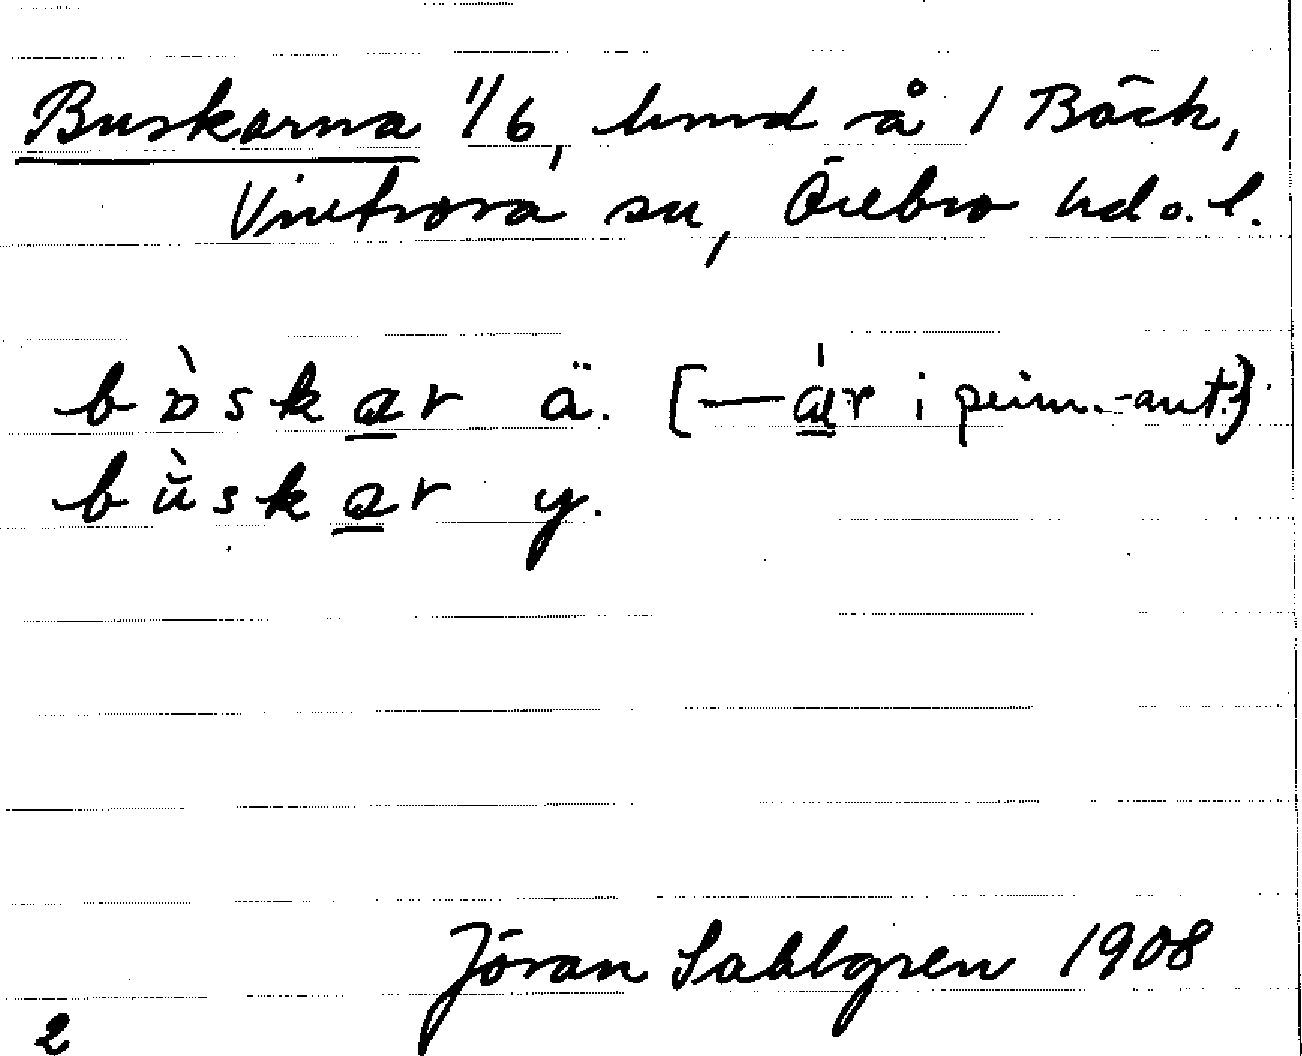 Buskarna 1/6, under å 1 Bäck,
Vintrosa sn, Örebro hd o. l.
bòskar ä. [—ár i prim.-ant.]
bùskar y.
Jöran Sahlgren 1908
2